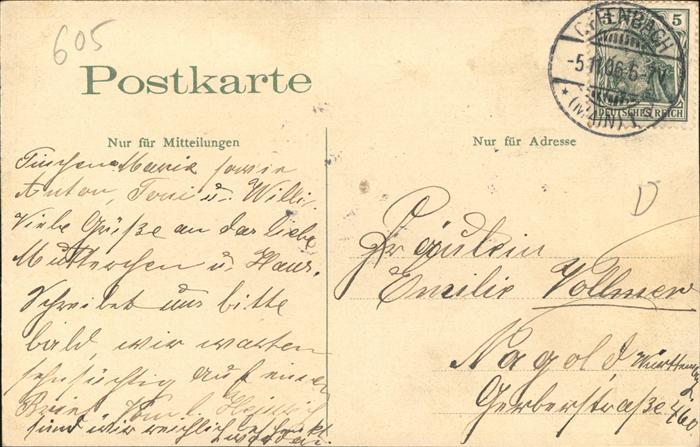 605
Postkarte
OFFENBACH
-5.11.06.5-7V
* (MAIN) 1 *
5
DEUTSCHES REICH
Nur für Mitteilungen
Marie sowie
Anton, Toni u. Willi.
Viele Grüße an das liebe
Mutterchen u. Haus.
Schreibet uns bitte
bald, wir warten
sehnsüchtig auf einen
Brief.
sind wir reichlich
Nur für Adresse
Fräulein
Emilie Vollmer
Nagold, Württemberg
Gerberstraße